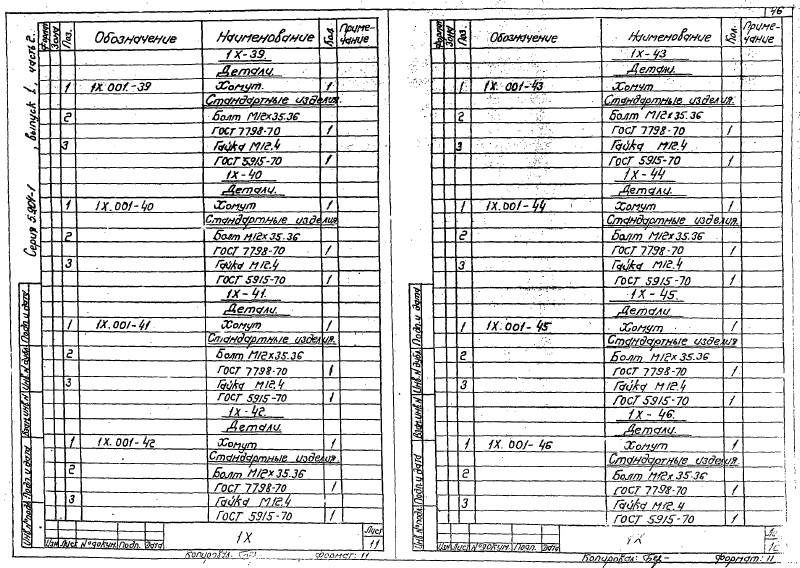 46
Серия 5.904-1, выпуск 1, часть 2.
Формат Зона Поз. Обозначение Наименование Кол Примечание
1Х-39.
Детали.
1 1Х.001-39 Хомут. 1
Стандартные изделия.
2 Болт М12×35.36
ГОСТ 7798-70 1
3 Гайка М12.4
ГОСТ 5915-70 1
1Х-40
Детали.
1 1Х.001-40 Хомут 1
Стандартные изделия
2 Болт М12×35.36
ГОСТ 7798-70 1
3 Гайка М12.4
ГОСТ 5915-70 1
1Х-41.
Детали.
1 1Х.001-41 Хомут 1
Стандартные изделия.
2 Болт М12×35.36
ГОСТ 7798-70 1
3 Гайка М12.4
ГОСТ 5915-70 1
1Х-42.
Детали.
1 1Х.001-42 Хомут 1
Стандартные изделия.
2 Болт М12×35.36
ГОСТ 7798-70 1
3 Гайка М12.4
ГОСТ 5915-70 1
Инв.№подл. Подп. и дата Взам.инв.№ Инв.№дубл. Подп. и дата
Изм. Лист №докум. Подп. Дата
1Х
Лист
11
Копировал: Формат: 11
Формат Зона Поз. Обозначение Наименование Кол. Примечание
1Х-43
Детали.
1 1Х.001-43 Хомут 1
Стандартные изделия.
2 Болт М12×35.36
ГОСТ 7798-70 1
3 Гайка М12.4
ГОСТ 5915-70 1
1Х-44
Детали.
1 1Х.001-44 Хомут 1
Стандартные изделия.
2 Болт М12×35.36
ГОСТ 7798-70 1
3 Гайка М12.4
ГОСТ 5915-70 1
1Х-45.
Детали
1 1Х.001-45 Хомут 1
Стандартные изделия
2 Болт М12×35.36
ГОСТ 7798-70 1
3 Гайка М12.4
ГОСТ 5915-70 1
1Х-46.
Детали.
1 1Х.001-46 Хомут 1
Стандартные изделия.
2 Болт М12×35.36
ГОСТ 7798-70 1
3 Гайка М12.4
ГОСТ 5915-70 1
Инв.№подл. Подп. и дата Взам.инв.№ Инв.№дубл. Подп. и дата
Изм. Лист №докум. Подп. Дата
1Х
Копировал: Формат: 11